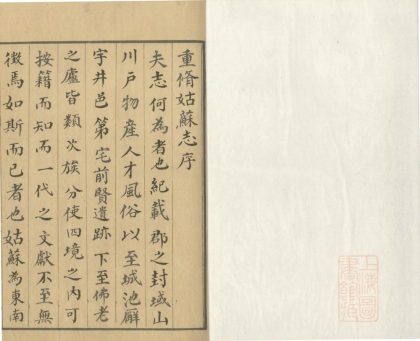 重脩姑蘇志序
夫志何為者也紀載郡之封域山
川戶物產人才風俗以至城池廨
宇井邑第宅前賢遺跡下至佛老
之廬皆類次族分使四境之內可
按籍而知而一代之文獻不至無
徵焉如斯而已者也姑蘇為東南
上海圖
書館藏